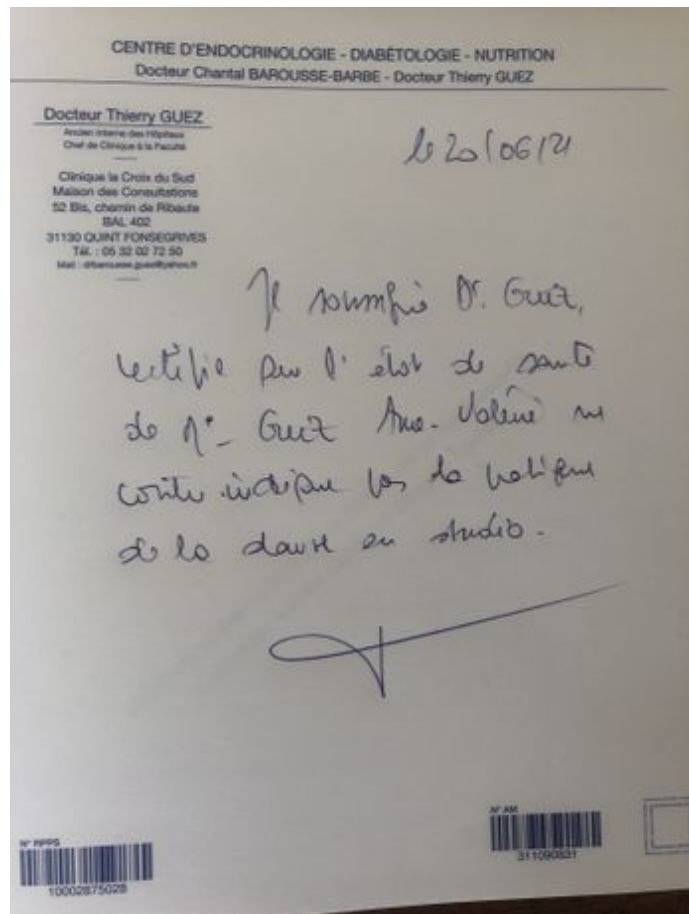 CENTRE D'ENDOCRINOLOGIE - DIABÉTOLOGIE - NUTRITION
Docteur Chantal BAROUSSE-BARBE - Docteur Thierry GUEZ
Docteur Thierry GUEZ
Ancien Interne des Hôpitaux
Chef de Clinique à la Faculté
Clinique la Croix du Sud
Maison des Consultations
52 Bis, chemin de Ribaute
BAL 402
31130 QUINT FONSEGRIVES
Tél. : 05 32 02 72 50
le 20/06/21
Je soussigné Dr. Guez,
certifie que l'état de santé
de Guez Valérie ne
contre indique pas la pratique
de la danse en studio.
N° RPPS
10002875028
N° AM
311090831